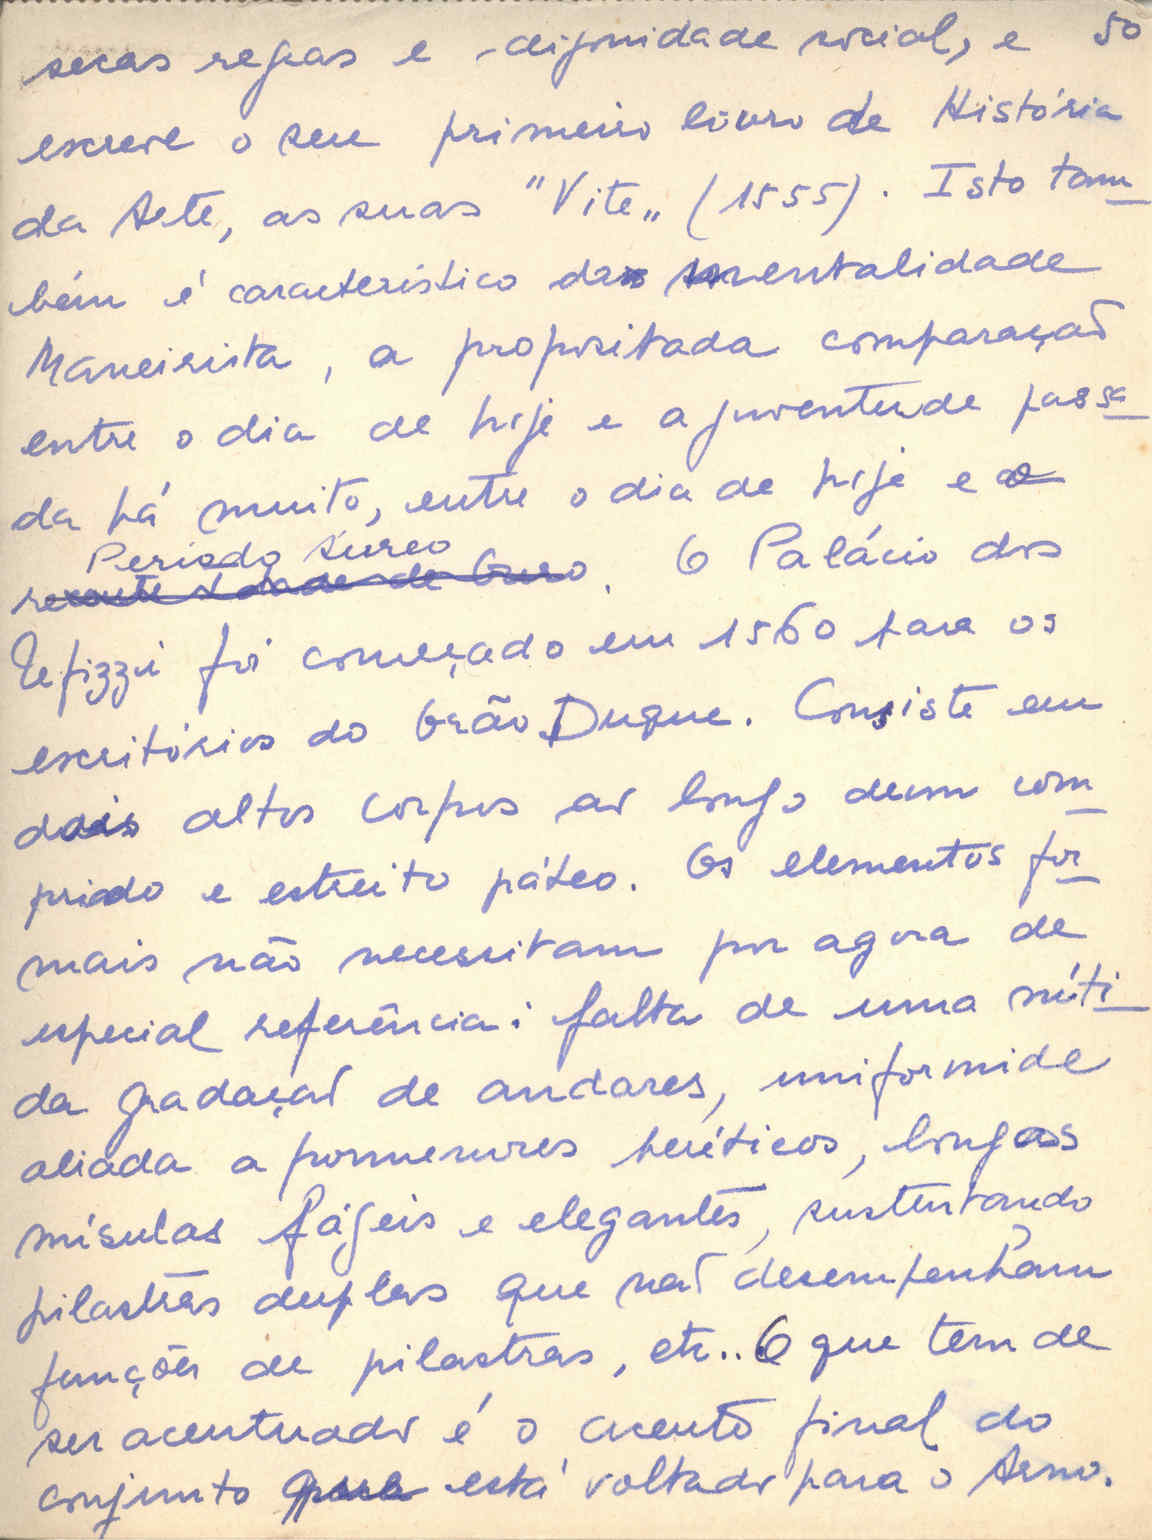 secas regras e dignidade social, e 50
escreve o seu primeiro livro de História
da Arte, as suas "Vite„ (1555). Isto tam
bém é característico da mentalidade
Maneirista, a propositada comparação
entre o dia de hoje e a juventude passa
da há muito, entre o dia de hoje e o
Periodo Áureo
remota Idade de Ouro. O Palácio dos
Uefizzi foi começado em 1560 para os
escritórios do Grão Duque. Consiste em
dois altos corpos ao longo dum com
prido e estreito páteo. Os elementos for
mais não necessitam por agora de
especial referência: falta de uma níti
da gradação de andares, uniformide
aliada a pormenores heréticos, longas
mísulas frágeis e elegantes, sustentando
pilastras duplas que não desempenham
funções de pilastras, etc.. O que tem de
ser acentuado é o acento final do
conjunto que está voltado para o Arno.